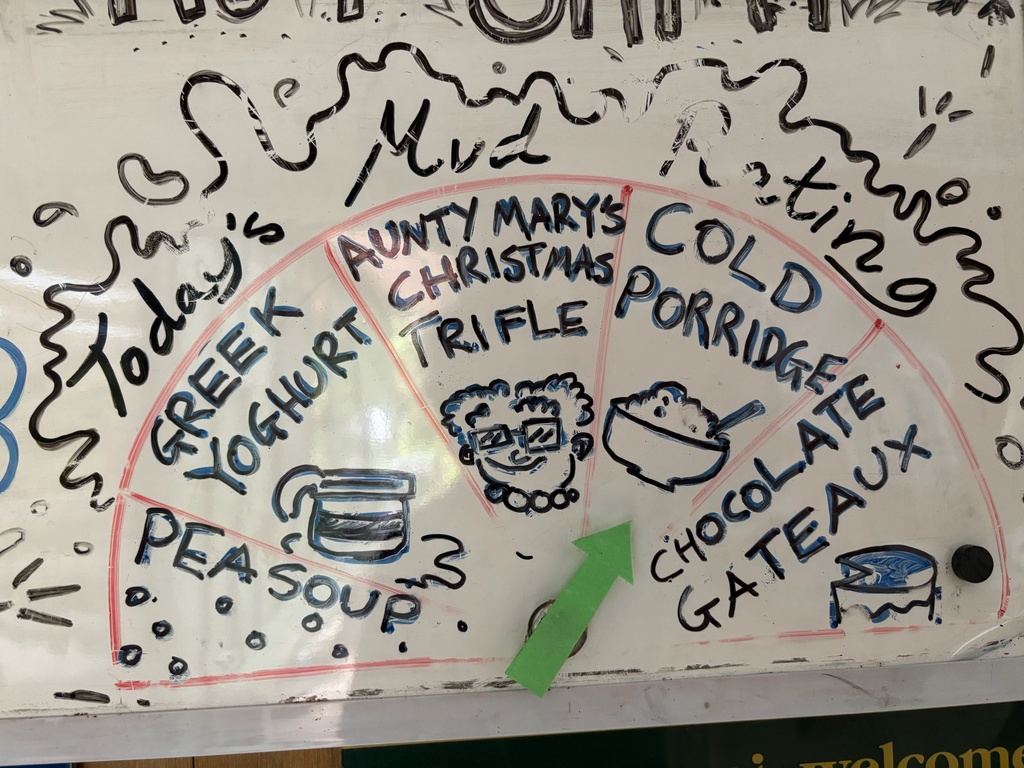 Today's Mud Rating
PEA SOUP
GREEK
YOGHURT
AUNTY MARY'S
CHRISTMAS
TRIFLE
COLD
PORRIDGE
CHOCOLATE
GATEAUX
welcome